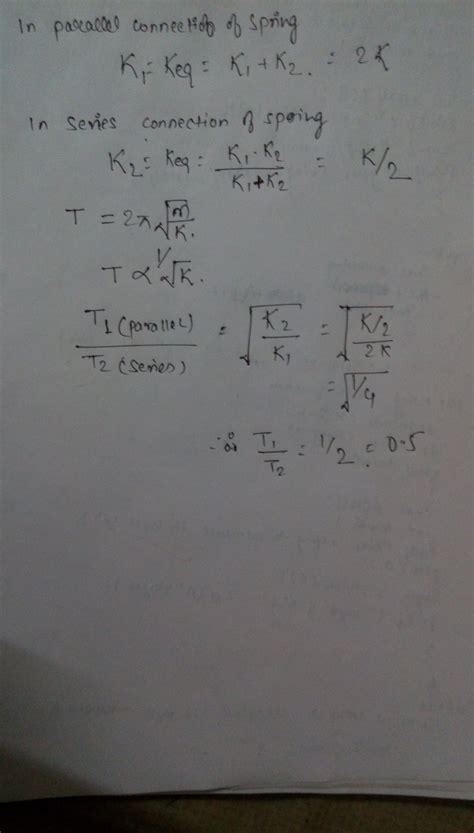 In parallel connection of spring
K₁ = Keq = K₁ + K₂ = 2K
In series connection of spring
K₂ = Keq = K₁·K₂ / K₁+K₂ = K/2
T = 2π√(m/K)
T ∝ 1/√K
T₁ (parallel) / T₂ (series) = √(K₂/K₁) = √((K/2)/(2K))
= √(1/4)
∴ T₁/T₂ = 1/2 = 0.5